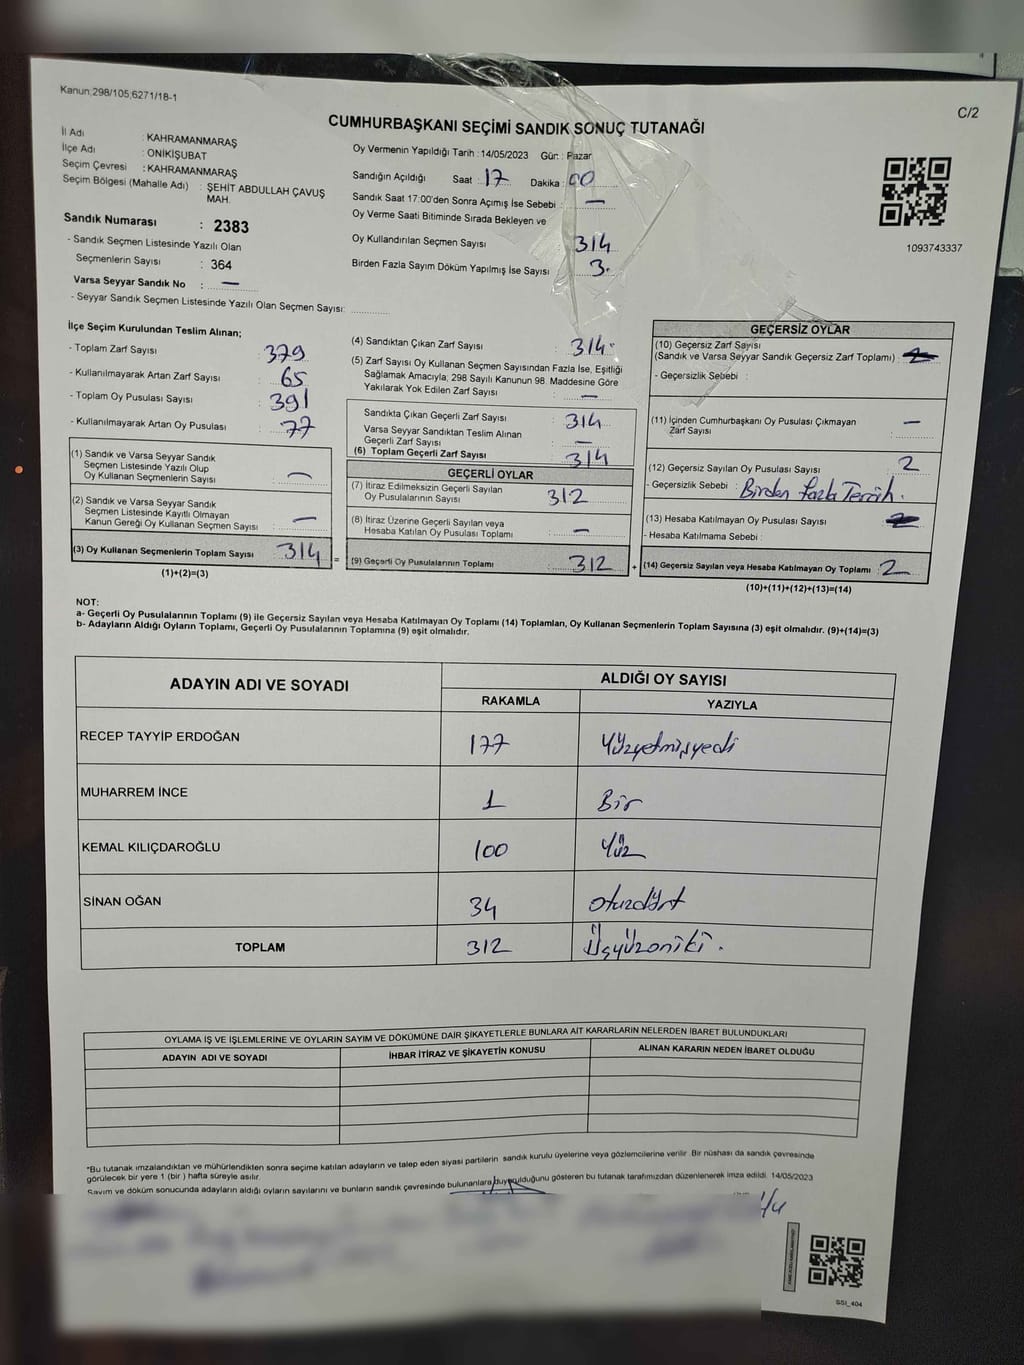 Kanun;298/105;6271/18-1
C/2
CUMHURBAŞKANI SEÇİMİ SANDIK SONUÇ TUTANAĞI
İl Adı : KAHRAMANMARAŞ
İlçe Adı : ONİKİŞUBAT
Seçim Çevresi : KAHRAMANMARAŞ
Seçim Bölgesi (Mahalle Adı) : ŞEHİT ABDULLAH ÇAVUŞ
MAH.
Sandık Numarası : 2383
- Sandık Seçmen Listesinde Yazılı Olan
Seçmenlerin Sayısı : 364
Varsa Seyyar Sandık No : —
- Seyyar Sandık Seçmen Listesinde Yazılı Olan Seçmen Sayısı: ..............
Oy Vermenin Yapıldığı Tarih : 14/05/2023 Gün : Pazar
Sandığın Açıldığı Saat : 17 Dakika : 00
Sandık Saat 17:00'den Sonra Açımış İse Sebebi : —
Oy Verme Saati Bitiminde Sırada Bekleyen ve
Oy Kullandırılan Seçmen Sayısı 314
Birden Fazla Sayım Döküm Yapılmış İse Sayısı 3.
1093743337
İlçe Seçim Kurulundan Teslim Alınan;
- Toplam Zarf Sayısı : 379
- Kullanılmayarak Artan Zarf Sayısı : 65
- Toplam Oy Pusulası Sayısı : 391
- Kullanılmayarak Artan Oy Pusulası : 77
(1) Sandık ve Varsa Seyyar Sandık
Seçmen Listesinde Yazılı Olup
Oy Kullanan Seçmenlerin Sayısı : —
(2) Sandık ve Varsa Seyyar Sandık
Seçmen Listesinde Kayıtlı Olmayan
Kanun Gereği Oy Kullanan Seçmen Sayısı : —
(3) Oy Kullanan Seçmenlerin Toplam Sayısı : 314
(1)+(2)=(3)
(4) Sandıktan Çıkan Zarf Sayısı : 314
(5) Zarf Sayısı Oy Kullanan Seçmen Sayısından Fazla İse, Eşitliği
Sağlamak Amacıyla; 298 Sayılı Kanunun 98. Maddesine Göre
Yakılarak Yok Edilen Zarf Sayısı : —
Sandıkta Çıkan Geçerli Zarf Sayısı : 314
Varsa Seyyar Sandıktan Teslim Alınan
Geçerli Zarf Sayısı : —
(6) Toplam Geçerli Zarf Sayısı : 314
GEÇERLİ OYLAR
(7) İtiraz Edilmeksizin Geçerli Sayılan
Oy Pusulalarının Sayısı : 312
(8) İtiraz Üzerine Geçerli Sayılan veya
Hesaba Katılan Oy Pusulası Toplamı : —
= (9) Geçerli Oy Pusulalarının Toplamı : 312 +
GEÇERSİZ OYLAR
(10) Geçersiz Zarf Sayısı
(Sandık ve Varsa Seyyar Sandık Geçersiz Zarf Toplamı) :
- Geçersizlik Sebebi :
(11) İçinden Cumhurbaşkanı Oy Pusulası Çıkmayan
Zarf Sayısı : —
(12) Geçersiz Sayılan Oy Pusulası Sayısı : 2
- Geçersizlik Sebebi : Birden fazla Tercih.
(13) Hesaba Katılmayan Oy Pusulası Sayısı :
- Hesaba Katılmama Sebebi :
(14) Geçersiz Sayılan veya Hesaba Katılmayan Oy Toplamı : 2
(10)+(11)+(12)+(13)=(14)
NOT:
a- Geçerli Oy Pusulalarının Toplamı (9) ile Geçersiz Sayılan veya Hesaba Katılmayan Oy Toplamı (14) Toplamları, Oy Kullanan Seçmenlerin Toplam Sayısına (3) eşit olmalıdır. (9)+(14)=(3)
b- Adayların Aldığı Oyların Toplamı, Geçerli Oy Pusulalarının Toplamına (9) eşit olmalıdır.
ADAYIN ADI VE SOYADI ALDIĞI OY SAYISI
RAKAMLA YAZIYLA
RECEP TAYYİP ERDOĞAN 177 Yüzyetmişyedi
MUHARREM İNCE 1 Bir
KEMAL KILIÇDAROĞLU 100 Yüz
SİNAN OĞAN 34 otuzdört
TOPLAM 312 Üçyüzoniki.
OYLAMA İŞ VE İŞLEMLERİNE VE OYLARIN SAYIM VE DÖKÜMÜNE DAİR ŞİKAYETLERLE BUNLARA AİT KARARLARIN NELERDEN İBARET BULUNDUKLARI
ADAYIN ADI VE SOYADI İHBAR İTİRAZ VE ŞİKAYETİN KONUSU ALINAN KARARIN NEDEN İBARET OLDUĞU
*Bu tutanak imzalandıktan ve mühürlendikten sonra seçime katılan adayların ve talep eden siyasi partilerin sandık kurulu üyelerine veya gözlemcilerine verilir. Bir nüshası da sandık çevresinde
görülecek bir yere 1 (bir ) hafta süreyle asılır.
Sayım ve döküm sonucunda adayların aldığı oyların sayılarını ve bunların sandık çevresinde bulunanlara duyurulduğunu gösteren bu tutanak tarafımızdan düzenlenerek imza edildi. 14/05/2023
SSI_404